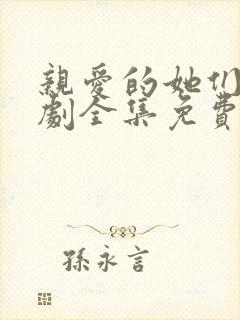 親愛的她们
劇全集免費
孫永言